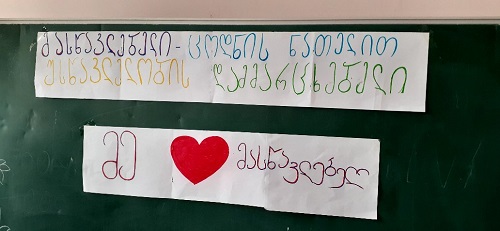 მასწავლებელი - ცოდნის ნათელით
უსწავლელობის დამმარცხებელი
მე ❤ მასწავლებელ